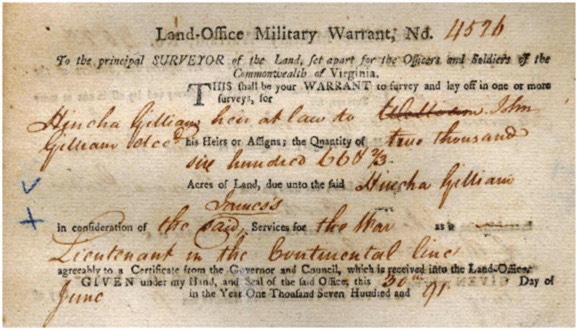 Land-Office Military Warrant, No. 4526
To the principal SURVEYOR of the Land, set apart for the Officers and Soldiers of the
Commonwealth of Virginia.
THIS shall be your WARRANT to survey and lay off in one or more
surveys, for
Hincha Gilliam heir at law to John
Gilliam decd. his Heirs or Assigns; the Quantity of two thousand
six hundred 66 2/3.
Acres of Land, due unto the said Hincha Gilliam
in consideration of the said Services for the War as a
Lieutenant in the Continental line
agreeably to a Certificate from the Governor and Council, which is received into the Land-Office.
GIVEN under my Hand, and Seal of the said Office, this 30th Day of
June in the Year One Thousand Seven Hundred and 91